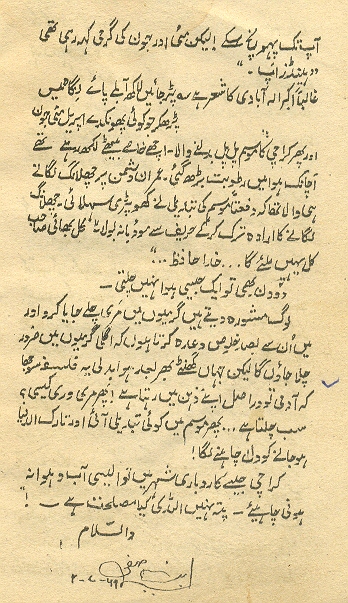 آپ تک پہنچ سکے۔ لیکن مئی اور جون کی گرمی کہہ رہی تھی
"ہینڈز اپ"۔
غالباً اکبر الہ آبادی کا شعر ہے سہ پڑ جائیں لاکھ آبلے پائے نگاہ میں
پڑھ کر جو کوئی پھونک دے اپریل مئی جون
اور پھر کراچی کا موسم پل پل بدلنے والا۔ اچھے خاصے بیٹھے لکھ رہے تھے
اچانک ہوا میں رطوبت بڑھ گئی۔ عمران دشمن پر چھلانگ لگانے
ہی والا تھا کہ دفعتاً موسم کی تبدیلی نے کھوپڑی سہلائی۔ چھلانگ
لگانے کا ارادہ ترک کر کے حریف سے مودبانہ بولا۔ "اچھا بھائی صاحب
کل یہیں ملئے گا... خدا حافظ..."
دو دن بھی تو ایک جیسی ہوا نہیں چلتی۔
لوگ مشورہ دیتے ہیں گرمیوں میں مری چلے جایا کرو اور
میں اُن سے بصد خلوص وعدہ کرتا ہوں کہ اگلی گرمیوں میں ضرور
چلا جاؤں گا لیکن یہاں گھنٹے بھر بعد ہوا بدلی یہ فلسفہ سوجھا
کہ آدمی تو دراصل اپنے ذہن میں رہتا ہے! پھر مری وری کیسی؟
سب چلتا ہے... پھر موسم میں کوئی تبدیلی آئی اور تارک الدنیا
ہو جانے کو دل چاہنے لگا!
کراچی جیسے کاروباری شہر میں تو ایسی آب و ہوا نہ
ہونی چاہیئے۔ پتہ نہیں اللہ کی کیا مصلحت ہے۔!
والسلام
ابن صفی